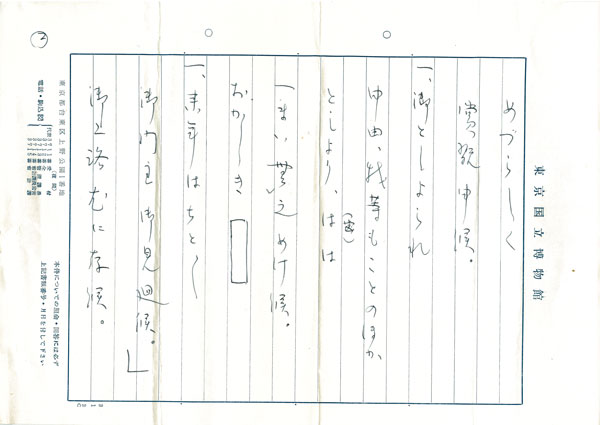 東京国立博物館
めづらしく
賞翫申候。
一、御としよられ
申由、我等もことのほか
としより、はは
一まい無之ぬけ候。
おかしき
一、来年はちと〱
御門主御見廻候。」
御上洛尤に存候。
東京都台東区上野公園1番地
電話・駒込
本件についての照会・回答には必ず
上記書類番号・月日を付して下さい